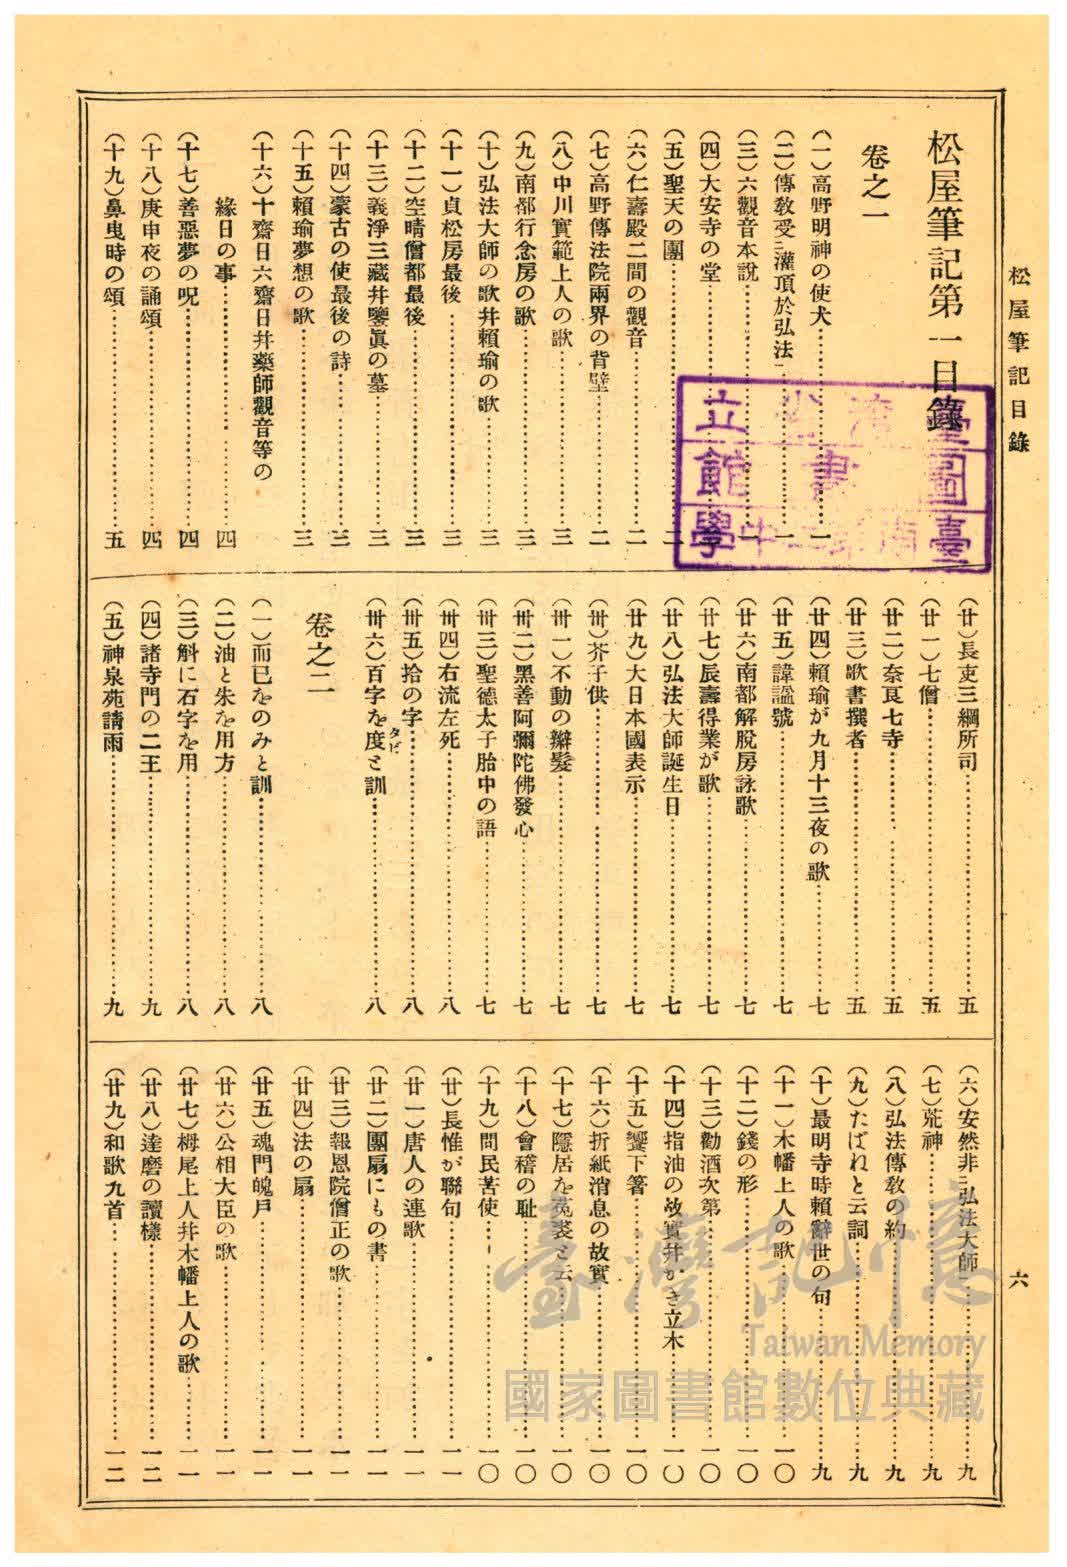 松屋筆記目錄
六
松屋筆記第一目錄
卷之一
(一)高野明神の使犬…一
(二)傳敎受ニ灌頂於弘法一…一
(三)六觀音本說…一
(四)大安寺の堂…
(五)聖天の團…二
(六)仁壽殿二間の觀音…二
(七)高野傳法院兩界の背壁…二
(八)中川實範上人の歌…三
(九)南都行念房の歌…三
(十)弘法大師の歌幷賴瑜の歌…三
(十一)貞松房最後…三
(十二)空晴僧都最後…三
(十三)義淨三藏幷鑒眞の墓…三
(十四)蒙古の使最後の詩…三
(十五)賴瑜夢想の歌…三
(十六)十齋日六齋日幷藥師觀音等の
緣日の事…四
(十七)善惡夢の呪…四
(十八)庚申夜の誦頌…四
(十九)鼻曳時の頌…五
(廿)長吏三綱所司…五
(廿一)七僧…五
(廿二)奈良七寺…五
(廿三)歌書撰者…五
(廿四)賴瑜が九月十三夜の歌…七
(廿五)諱謚號…七
(廿六)南都解脫房詠歌…七
(廿七)辰壽得業が歌…七
(廿八)弘法大師誕生日…七
(廿九)大日本國表示…七
(卅)芥子供…七
(卅一)不動の辮髮…七
(卅二)黑善阿彌陀佛發心…七
(卅三)聖德太子胎中の語…七
(卅四)右流左死…八
(卅五)拾の字…八
(卅六)百字を度タビと訓…八
卷之二
(一)而已をのみと訓…八
(二)油と朱を用方…八
(三)斛に石字を用…八
(四)諸寺門の二王…九
(五)神泉苑請雨…九
(六)安然非ニ弘法大師一…九
(七)荒神…九
(八)弘法傳敎の約…九
(九)たばねと云詞…九
(十)最明寺時賴辭世の句…九
(十一)木幡上人の歌…一〇
(十二)錢の形…一〇
(十三)勸酒次第…一〇
(十四)指油の故實幷かき立木…一〇
(十五)饗下箸…一〇
(十六)折紙消息の故實…一〇
(十七)隱居を菟裘と云…一〇
(十八)會稽の耻…一〇
(十九)問民苦使…一〇
(廿)長惟が聯句…一一
(廿一)唐人の連歌…一一
(廿二)團扇にもの書…一一
(廿三)報恩院僧正の歌…一一
(廿四)法の扇…一一
(廿五)魂門魄戶…一一
(廿六)公相大臣の歌…一一
(廿七)栂尾上人幷木幡上人の歌…一一
(廿八)達磨の讀樣…一二
(廿九)和歌九首…一二
臺灣記憶
Taiwan Memory
國家圖書館數位典藏